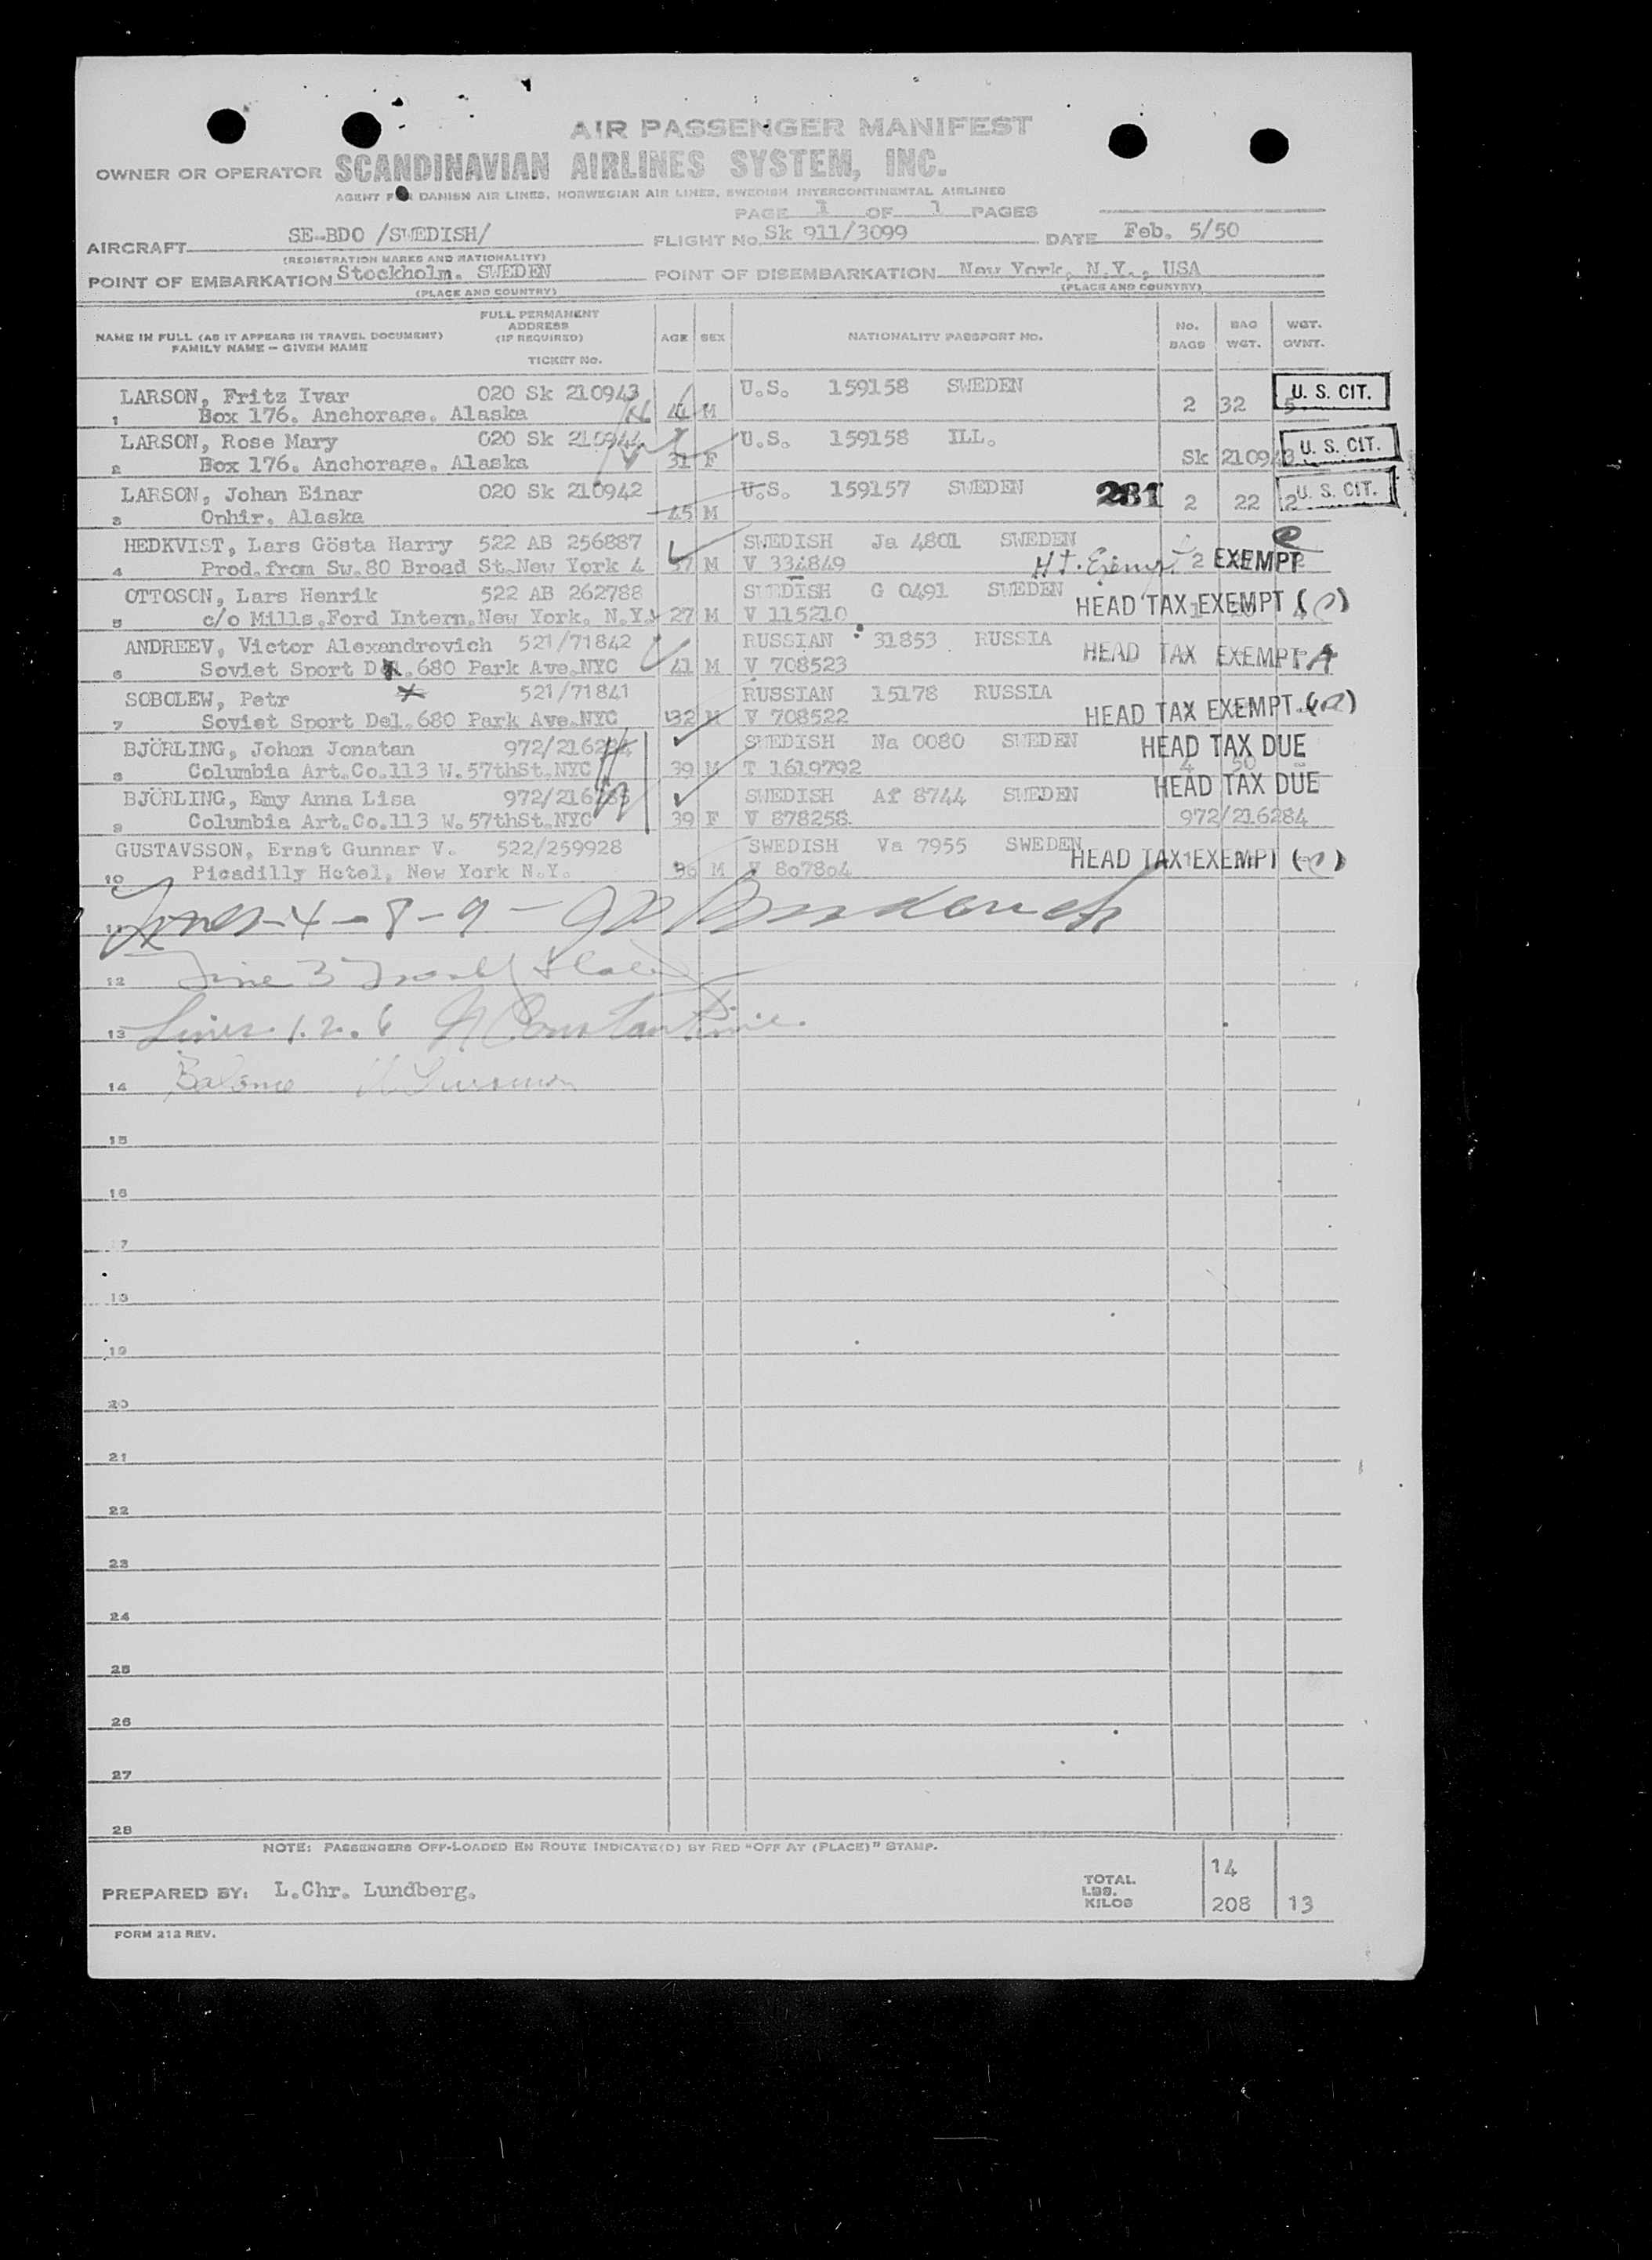 AIR PASSENGER MANIFEST
OWNER OR OPERATOR SCANDINAVIAN AIRLINES SYSTEM, INC.
AGENT FOR DANISH AIR LINES, NORWEGIAN AIR LINES, SWEDISH INTERCONTINENTAL AIRLINES
PAGE 1 OF 1 PAGES
AIRCRAFT SE-BDO /SWEDISH/ FLIGHT No. Sk 911/3099 DATE Feb. 5/50
(REGISTRATION MARKS AND NATIONALITY)
POINT OF EMBARKATION Stockholm. SWEDEN POINT OF DISEMBARKATION New York, N.Y., USA
(PLACE AND COUNTRY) (PLACE AND COUNTRY)
NAME IN FULL (AS IT APPEARS IN TRAVEL DOCUMENT) FAMILY NAME – GIVEN NAME FULL PERMANENT ADDRESS (IF REQUIRED) TICKET No. AGE SEX NATIONALITY PASSPORT No. No. BAGS BAG WGT. WGT. OVNT.
LARSON, Fritz Ivar 020 Sk 210943 U.S. 159158 SWEDEN U. S. CIT.
1 Box 176. Anchorage. Alaska 44 M 2 32 5
LARSON, Rose Mary 020 Sk 210944 U.S. 159158 ILL. U. S. CIT.
2 Box 176. Anchorage. Alaska 31 F Sk 210943
LARSON, Johan Einar 020 Sk 210942 U.S. 159157 SWEDEN 281 U. S. CIT.
3 Ophir. Alaska 45 M 2 22 2
HEDKVIST, Lars Gösta Harry 522 AB 256887 SWEDISH Ja 4801 SWEDEN
4 Prod.from Sw.80 Broad St.New York 4 37 M V 334849 Ht. Exempt 2 EXEMPT
OTTOSON, Lars Henrik 522 AB 262788 SWEDISH G 0491 SWEDEN
5 c/o Mills.Ford Intern.New York. N.Y. 27 M V 115210 HEAD TAX EXEMPT
ANDREEV, Victor Alexandrovich 521/71842 RUSSIAN 31853 RUSSIA
6 Soviet Sport Del.680 Park Ave.NYC 41 M V 708523 HEAD TAX EXEMPT A
SOBOLEW, Petr 521/71841 RUSSIAN 15178 RUSSIA
7 Soviet Sport Del.680 Park Ave.NYC 32 M V 708522 HEAD TAX EXEMPT
BJÖRLING, Johan Jonatan 972/216284 SWEDISH Na 0080 SWEDEN HEAD TAX DUE
8 Columbia Art.Co.113 W.57thSt.NYC 39 M T 1619792 4 50
BJÖRLING, Emy Anna Lisa 972/216285 SWEDISH Af 8744 SWEDEN HEAD TAX DUE
9 Columbia Art.Co.113 W.57thSt.NYC 39 F V 878258 972/216284
GUSTAVSSON, Ernst Gunnar V. 522/259928 SWEDISH Va 7955 SWEDEN
10 Picadilly Hotel, New York N.Y. 36 M V 807804 HEAD TAX EXEMPT
11 Lines-4-8-9-
12 Line 3
13 Lines 1.2.6 Constantine.
14 Balance
15
16
17
18
19
20
21
22
23
24
25
26
27
28
NOTE: PASSENGERS OFF-LOADED EN ROUTE INDICATE(D) BY RED "OFF AT (PLACE)" STAMP.
PREPARED BY: L.Chr. Lundberg.
TOTAL 14
LBS.
KILOS 208 13
FORM 212 REV.